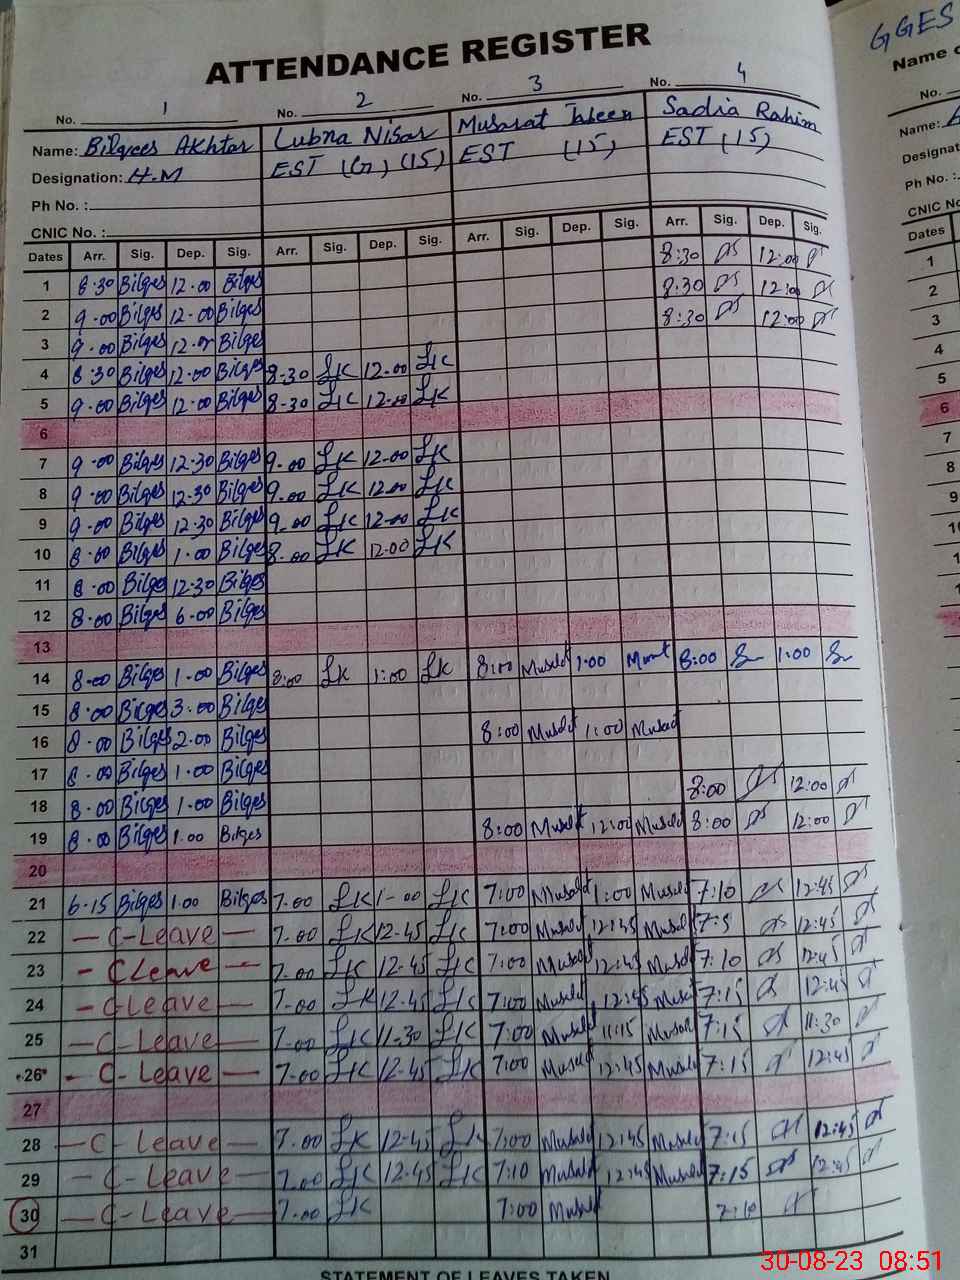 ATTENDANCE REGISTER
GGES
No. 1 No. 2 No. 3 No. 4
Name: Bilqees Akhtar Lubna Nisar Musarat Jabeen Sadia Rahim
Designation: H.M EST (G) (15) EST (15) EST (15)
Ph No. :
CNIC No. :
Dates Arr. Sig. Dep. Sig. Arr. Sig. Dep. Sig. Arr. Sig. Dep. Sig. Arr. Sig. Dep. Sig.
8:30 12:00
1 8.30 Bilqes 12.00 Bilqes 8:30 12:00
2 9.00 Bilqes 12.00 Bilqes 8:30 12:00
3 9.00 Bilqes 12.00 Bilqes
4 8.30 Bilqes 12.00 Bilqes 8-30 LK 12-00 LK
5 9.00 Bilqes 12.00 Bilqes 8-30 LK 12-00 LK
6
7 9.00 Bilqes 12.30 Bilqes 9-00 LK 12-00 LK
8 9.00 Bilqes 12.30 Bilqes 9-00 LK 12-00 LK
9 9.00 Bilqes 12.30 Bilqes 9-00 LK 12-00 LK
10 8.00 Bilqes 1.00 Bilqes 8-00 LK 12-00 LK
11 8.00 Bilqes 12.30 Bilqes
12 8.00 Bilqes 6.00 Bilqes
13
14 8.00 Bilqes 1.00 Bilqes 8:00 LK 1:00 LK 8:00 1:00 8:00 1:00
15 8.00 Bilqes 3.00 Bilqes
16 8.00 Bilqes 2.00 Bilqes 8:00 1:00
17 8.00 Bilqes 1.00 Bilqes
18 8.00 Bilqes 1.00 Bilqes 8:00 12:00
19 8.00 Bilqes 1.00 Bilqes 8:00 12:00 8:00 12:00
20
21 6.15 Bilqes 1.00 Bilqes 7.00 LK 1-00 LK 7:00 1:00 7:10 12:45
22 - C-Leave - 7.00 LK 12-45 LK 7:00 12:45 7:5 12:45
23 - C Leave - 7.00 LK 12-45 LK 7:00 12:45 7:10 12:45
24 - C-Leave - 7.00 LK 12-45 LK 7:00 12:45 7:15 12:45
25 - C-Leave - 7.00 LK 11-30 LK 7:00 11:15 7:15 11:30
26 - C-Leave - 7.00 LK 12-45 LK 7:00 12:45 7:15 12:45
27
28 - C-Leave - 7.00 LK 12-45 LK 7:00 12:45 7:15 12:45
29 - C-Leave - 7.00 LK 12-45 LK 7:10 12:45 7:15 12:45
30 - C-Leave - 7.00 LK 7:00 7:10
31
STATEMENT OF LEAVES TAKEN
Name
No.
Name:
Designat
Ph No. :
CNIC No
Dates
1
2
3
4
5
6
7
8
9
30-08-23 08:51